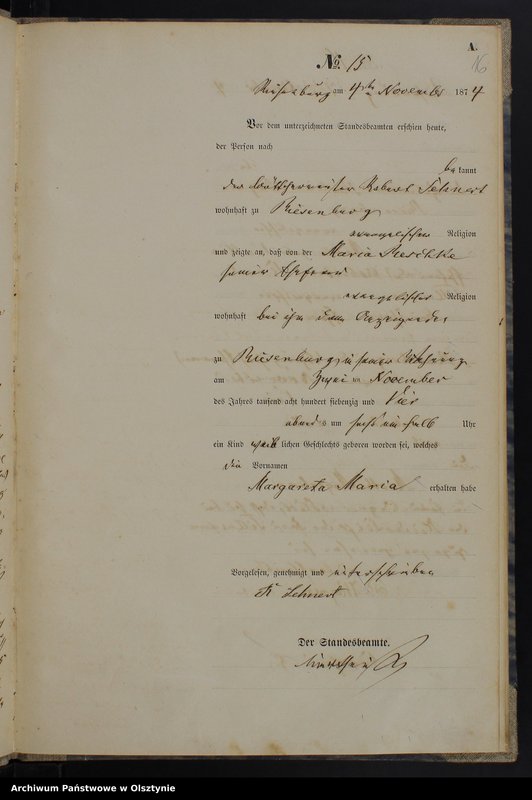 A.
16
No. 15
Riesenburg am 4ten November 1874
Vor dem unterzeichneten Standesbeamten erschien heute,
der Person nach
bekannt
der Böttchermeister Robert Lehnert
wohnhaft zu Riesenburg
evangelischer Religion
und zeigte an, daß von der Maria Reschke
seiner Ehefrau
evangelischer Religion
wohnhaft bei ihm dem Anzeigenden
zu Riesenburg in seiner Wohnung
am Zwei ten November
des Jahres tausend acht hundert siebenzig und Vier
abends um sechs ein halb Uhr
ein Kind weiblichen Geschlechts geboren worden sei, welches
die Vornamen
Margareta Maria erhalten habe
Vorgelesen, genehmigt und unterschrieben
R Lehnert
Der Standesbeamte.
Archiwum Państwowe w Olsztynie